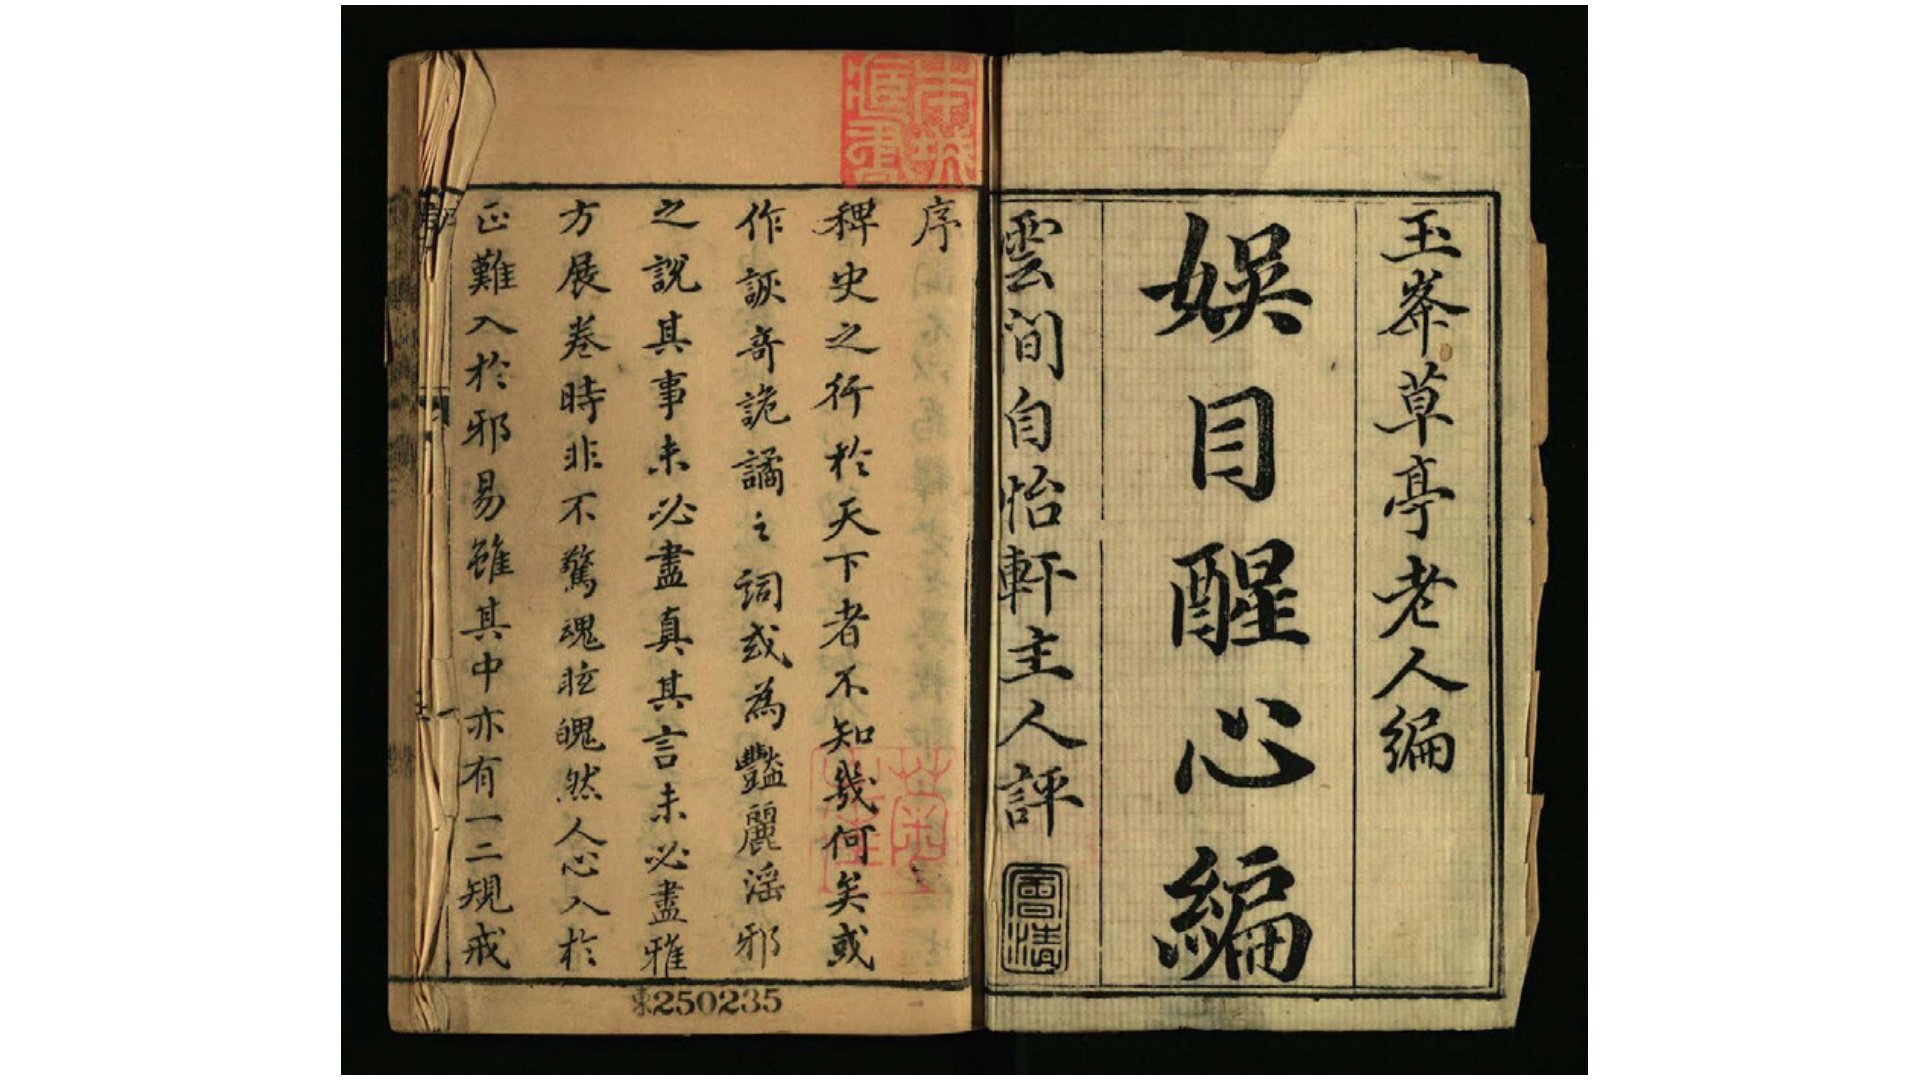 玉峯草亭老人編
娛目醒心編
雲間自怡軒主人評
序
稗史之行於天下者不知幾何矣或
作詼奇詭譎之詞或為豔麗淫邪
之說其事未必盡真其言未必盡雅
方展卷時非不驚魂眩魄然人心入於
正難入於邪易雖其中亦有一二規戒
東250235